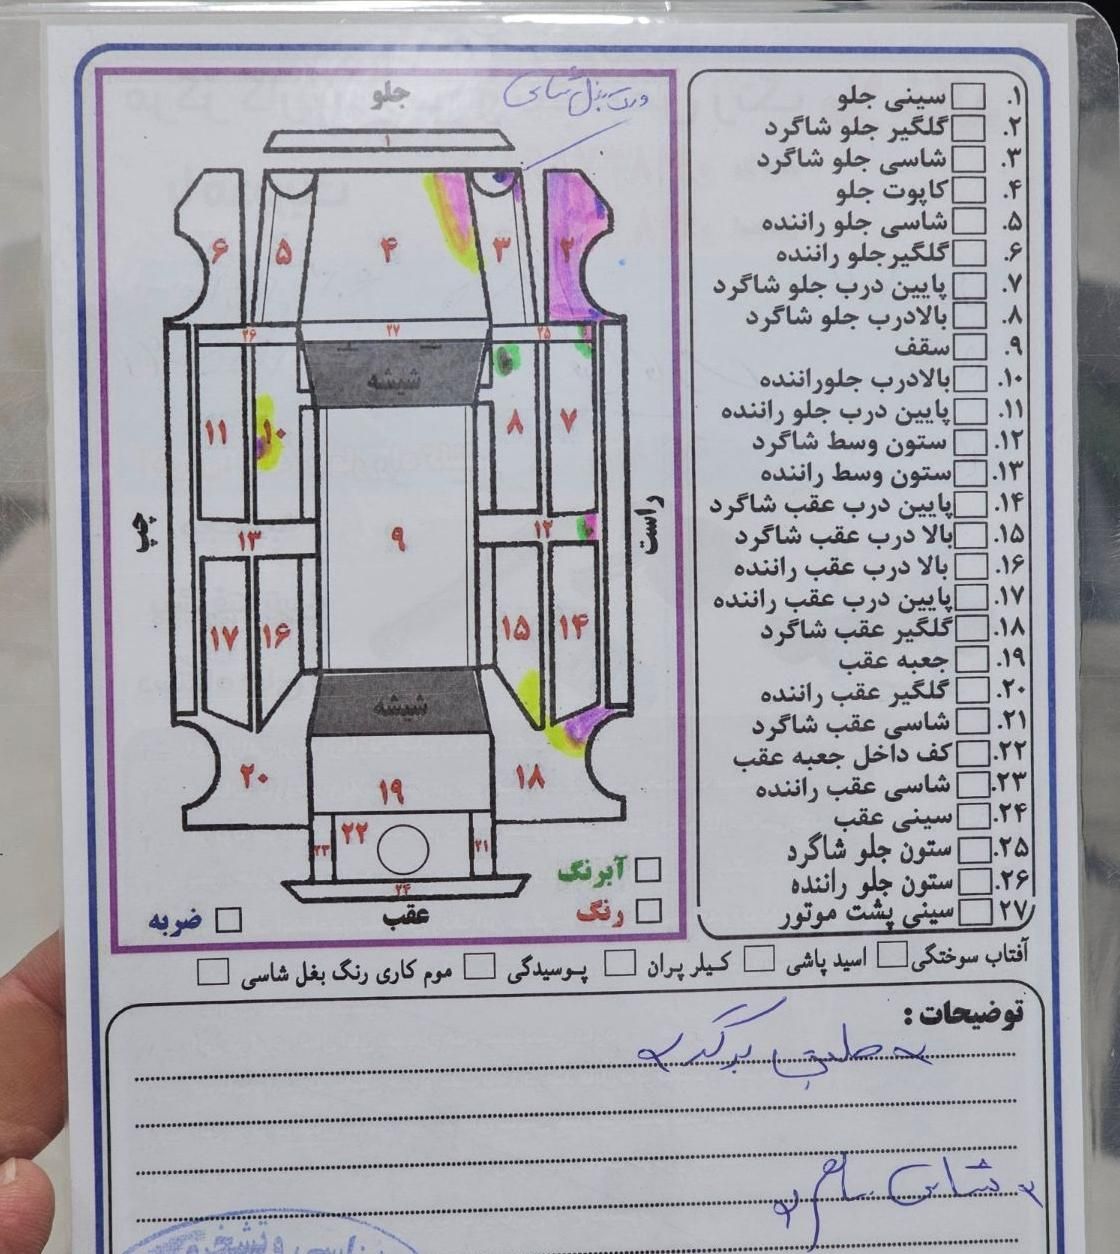 جلو
ورق بغل شاسی
۱
۲
۳
۴
۵
۶
۲۵
۲۷
۲۶
شیشه
۷
۸
۱۰
۱۱
راست
چپ
۹
۱۲
۱۳
۱۴
۱۵
۱۶
۱۷
شیشه
۱۸
۱۹
۲۰
۲۱
۲۲
۲۳
۲۴
عقب
آبرنگ
رنگ
ضربه
۱. سینی جلو
۲. گلگیر جلو شاگرد
۳. شاسی جلو شاگرد
۴. کاپوت جلو
۵. شاسی جلو راننده
۶. گلگیرجلو راننده
۷. پایین درب جلو شاگرد
۸. بالادرب جلو شاگرد
۹. سقف
۱۰. بالادرب جلوراننده
۱۱. پایین درب جلو راننده
۱۲. ستون وسط شاگرد
۱۳. ستون وسط راننده
۱۴. پایین درب عقب شاگرد
۱۵. بالا درب عقب شاگرد
۱۶. بالا درب عقب راننده
۱۷. پایین درب عقب راننده
۱۸. گلگیر عقب شاگرد
۱۹. جعبه عقب
۲۰. گلگیر عقب راننده
۲۱. شاسی عقب شاگرد
۲۲. کف داخل جعبه عقب
۲۳. شاسی عقب راننده
۲۴. سینی عقب
۲۵. ستون جلو شاگرد
۲۶. ستون جلو راننده
۲۷. سینی پشت موتور
آفتاب سوختگی اسید پاشی کیلر پران پوسیدگی موم کاری رنگ بغل شاسی
توضیحات :
طبق برگه
شاسی سالم